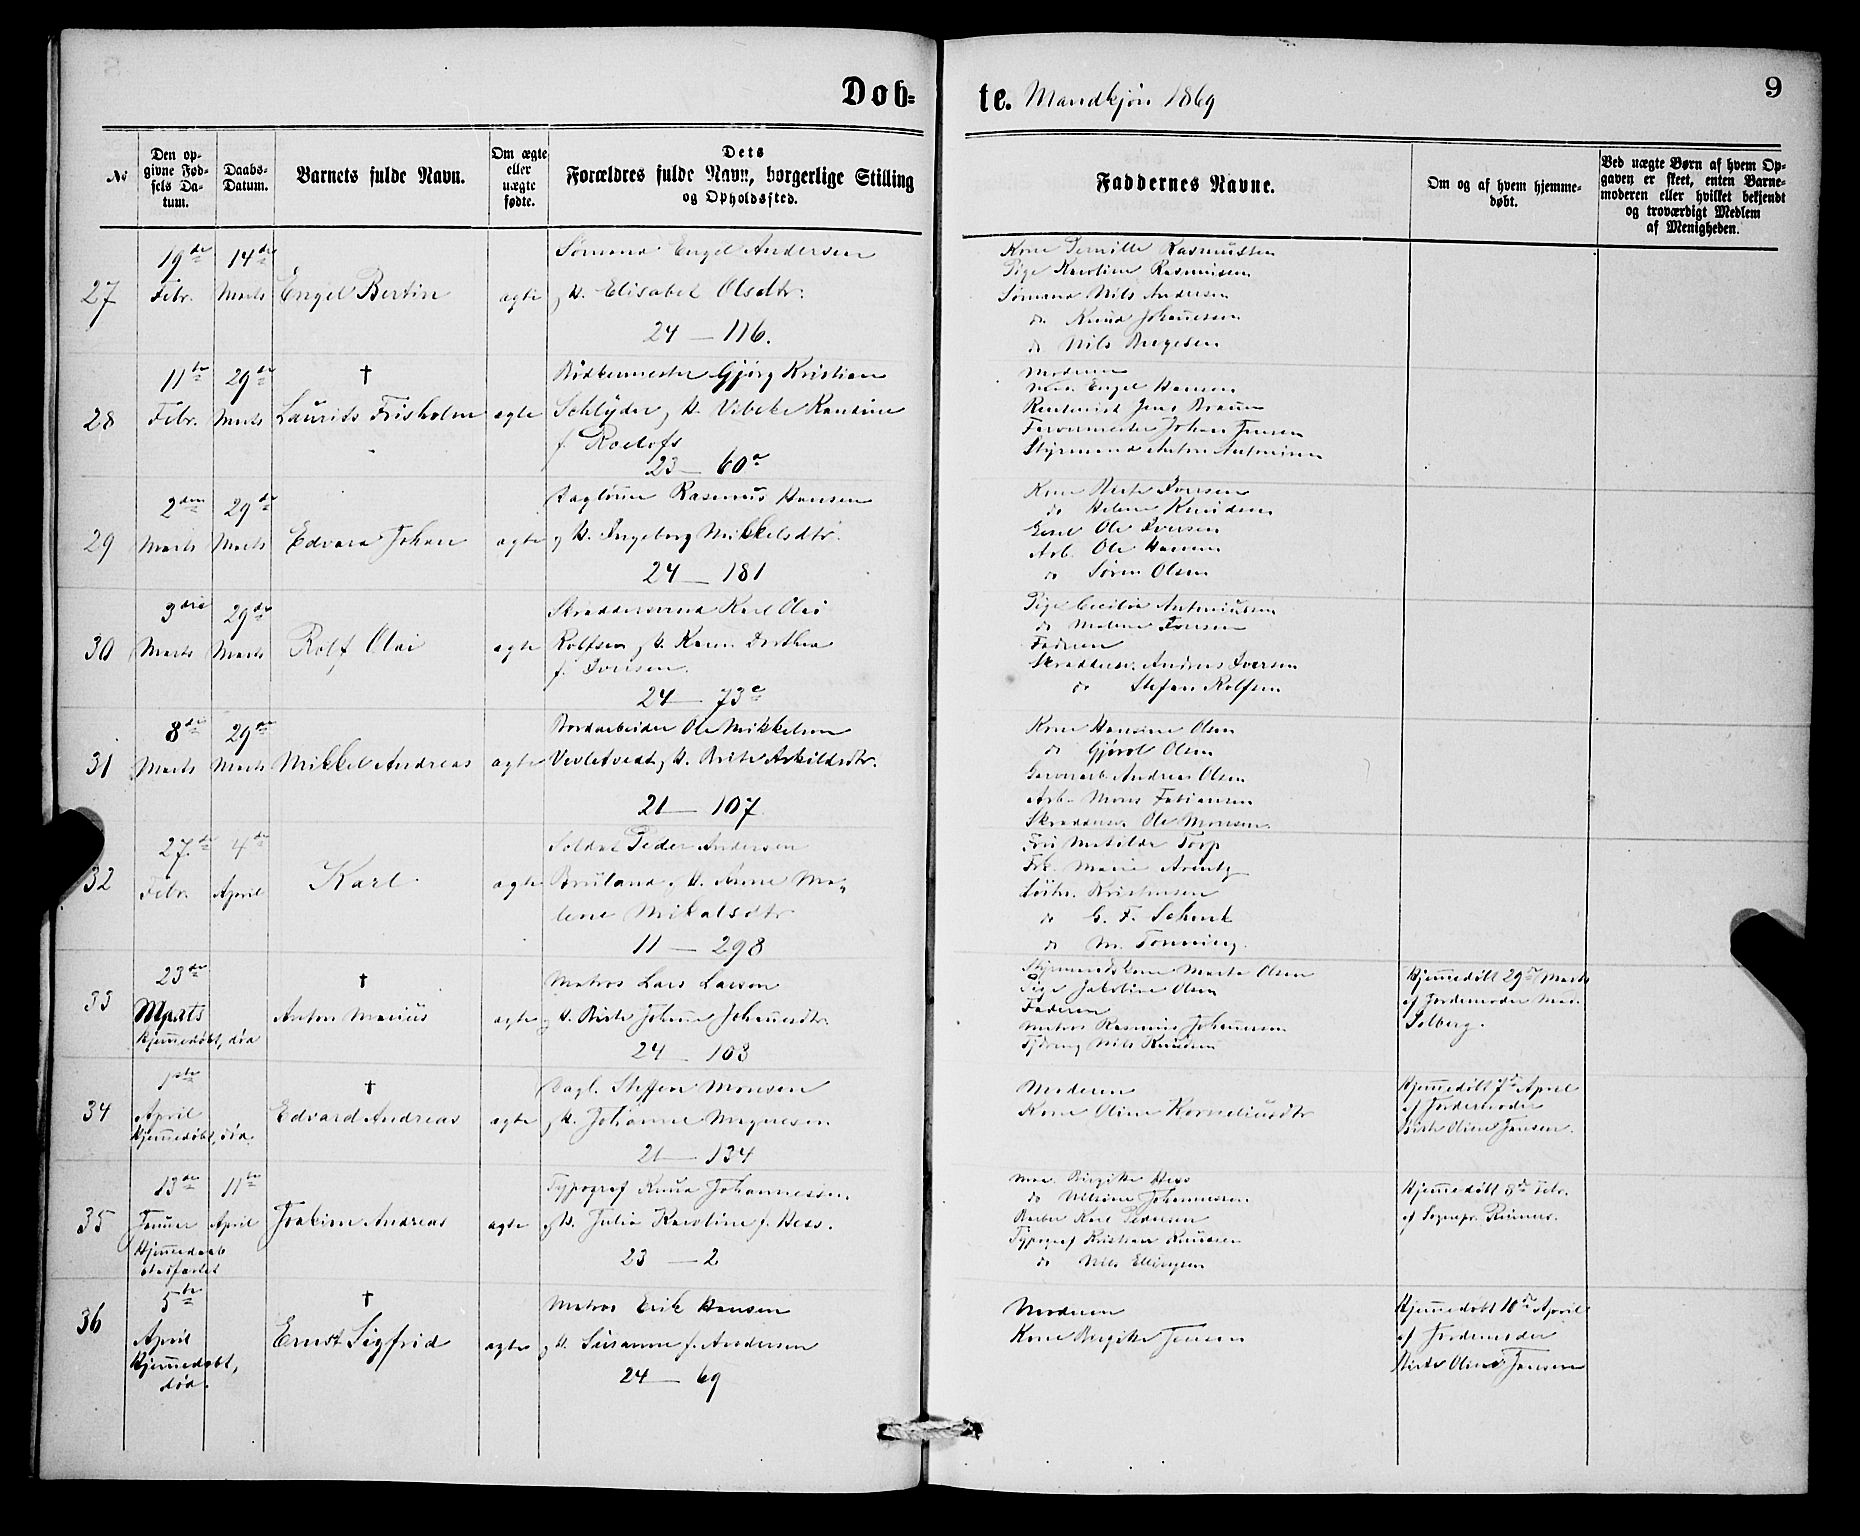 Døb=
te. Mandkjøn 1869
9
No
Den op-
givne Fød-
sels Da-
tum.
Daabs-
Datum.
Barnets fulde Navn.
Om ægte
eller
uægte
fødte.
Dets
Forældres fulde Navn, borgerlige Stilling
og Opholdssted.
Faddernes Navne.
Om og af hvem hjemme-
døbt.
Ved uægte Børn af hvem Op-
gaven er skeet, enten Barne-
moderen eller hvilket bekjendt
og troværdigt Medlem
af Menigheden.
27
19de
Febr.
14de
Marts
Engel Bertin
ægte
Sømand Engel Andersen
og H. Elisabet Olsdtr.
24 — 116.
Kone Pernille Rasmussen
Pige Karoline Rasmusen
Sømand Nils Andersen
do Knud Johannesen
do Nils Børgesen
28
11te
Febr.
29de
Marts
†
Laurits Frisholm
ægte
Bødkermester Gjørg Kristian
Schlyder, H. Vibeke
f. Roelofs
23 — 60a
Moderen
Mad. Engel Hansen
Jens
Farvermester Johan Jensen
Styrmand Anton Antonisen
29
2den
Marts
29de
Marts
Edvard Johan
ægte
Dagløner Rasmus Hansen
og H. Ingeborg Mikkelsdtr.
24 — 181
Kone Iversen
do Helene Knudsen
Ole Iversen
Arb. Ole Hansen
do Søren Olsen
30
3die
Marts
29de
Marts
Rolf Olai
ægte
Skræddersvend Karl Olai
Rolfsen, H. Karen Dorthea
f. Iversen.
24 — 73c
Pige Cecilia Antoniussen
do Malene Iversen
Faderen
Skrædders. Andreas Iversen
do Stefan Rolfsen
31
8de
Marts
29de
Marts
Mikkel Andreas
ægte
Bordarbeider Ole Mikkelsen
Vevletvedt, H. Brite Askildsdtr.
21 — 107
Kone Hansine Olsen
do Gjøról Olsen
Garverarb. Andreas Olsen
Arb. Mons Fabiansen
Skrædders. Ole Monsen.
32
27de
Febr.
4de
April
Karl
ægte
Soldat Peder Andersen
Bruland, H. Anne Ma-
lene Mikalsdtr
11 — 298
Fru Matilde Torp
Frk. Marie Arentz
Kristensen
do G. F. Schenk
do M. Tonning.
33
23de
Marts
Hjemmedøbt, død
†
Anton Marius
ægte
Matros Lars Larson
og H. Birte Johanne Johannesdtr.
24 - 103
Styrmandskone Marta Olsen
Pige Jakobine Olsen
Faderen
Matros Rasmus Johannesen
Nils Knudsen
Hjemmedøbt 29de Marts
af Jordemoder Mad.
Solberg.
34
1ste
April
Hjemmedøbt, død.
†
Edvard Andreas
ægte
Dagl. Steffen Monsen
og H. Johanne Magnesen
21 — 134
Moderen
Kone Oline Korneliusdtr
Hjemmedøbt 7de April
af Jordemoder
Birte Oline Jansen.
35
13de
Januar
Hjemmedaab
stadfæstet
11te
April
Joakim Andreas
ægte
Typograf Knud Johannessen.
og H. Julia Karoline f. Hess.
23 — 2
Mad. Birgitte Hess
do Johannessen
Barber Karl Pedersen
Typograf Kristian Knudsen
do Nils Ellingsen
Hjemmedøbt 8de Febr.
af Sognepr.
36
5te
April
Hjemmedøbt,
død.
†
Ernst Sigfrid
ægte
Matros Erik Hansen
og H. Susanne f. Andersen
24 — 69
Moderen
Kone Birgitte Jensen
Hjemmedøbt 10de April
af Jordemoder
Birte Oline Jansen